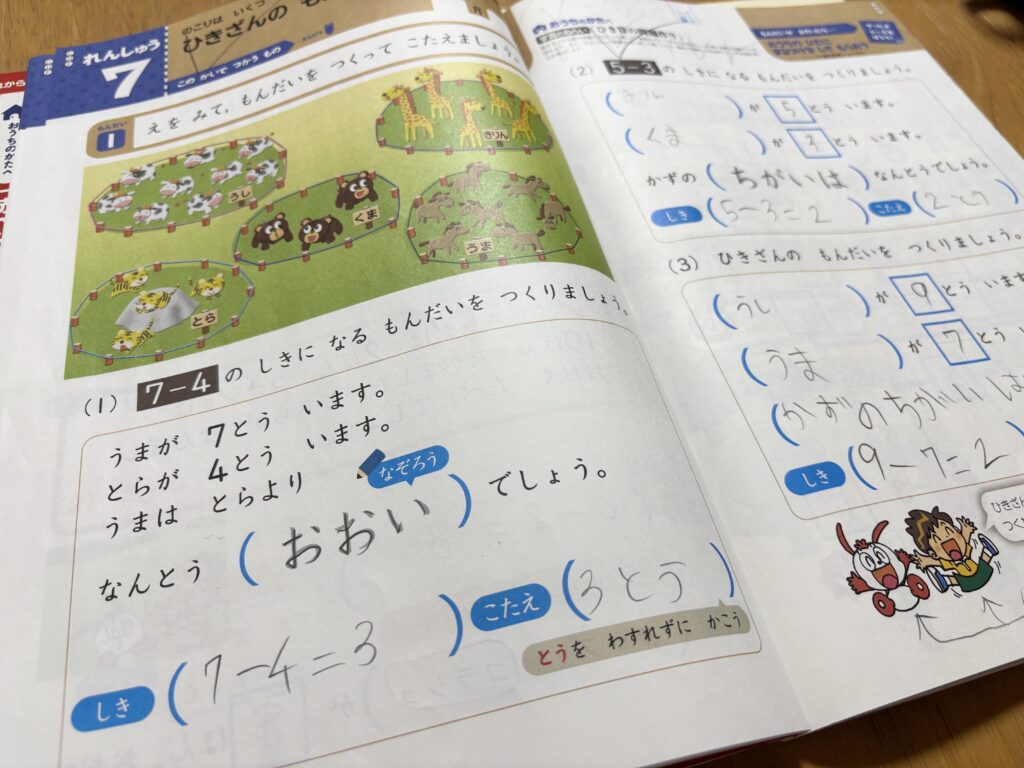 れんしゅう
7
のこりは いくつ
ひきざんの も
この かいで つかう もの
えんぴつ
もんだい
1
えを みて、もんだいを つくって こたえましょう。
うし
きりん
くま
うま
とら
(1) 7-4 の しきに なる もんだいを つくりましょう。
うまが 7とう います。
とらが 4とう います。
うまは とらより
なぞろう
なんとう (おおい) でしょう。
しき (7-4=3) こたえ (3とう)
とうを わすれずに かこう
おうちのかたへ
から
(2) 5-3 の しきに なる もんだいを つくりましょう。
(きりん) が 5 とう います。
(くま) が 3 とう います。
かずの (ちがいは) なんとうでしょう。
しき (5-3=2) こたえ (2とう)
(3) ひきざんの もんだいを つくりましょう。
(うし) が 9 とう います
(うま) が 7 とう
(かずのちがいは
しき (9-7=2
ひきざん
つく